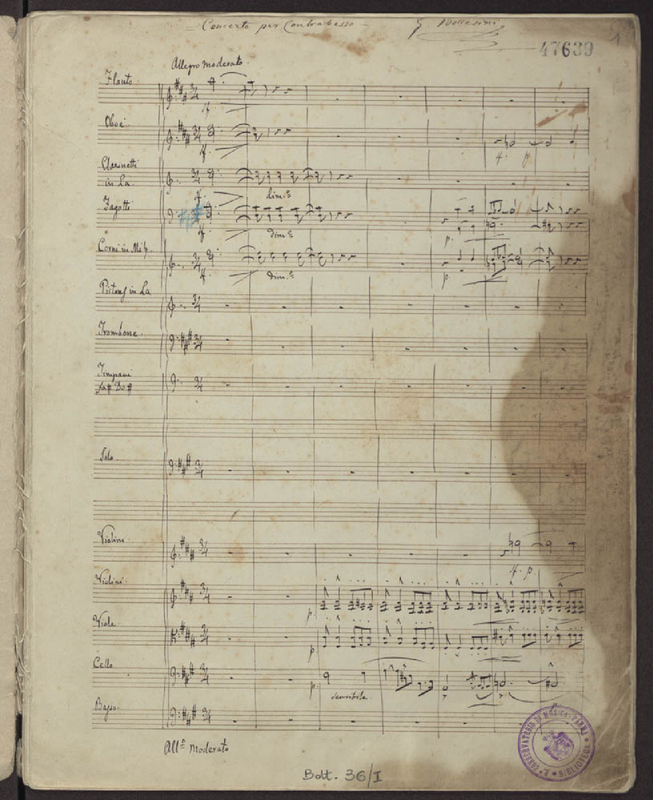 Concerto per Contrabasso G Bottesini
47639
Allegro moderato
Flauto
Oboè
Clarinetti
in La
Fagotti
Corni in Mi♮
in La
Trombone
Timpani
Fa# Do#
Solo
Violini
Violini
Viole
Cello
Bassi
ff
ff
ff
dim.
ff
dim.
ff
dim.
f. p.
p.
p.
f. p.
p.
p.
p.
sensibile
All° moderato
Bott. 36/I
BIBLIOTECA